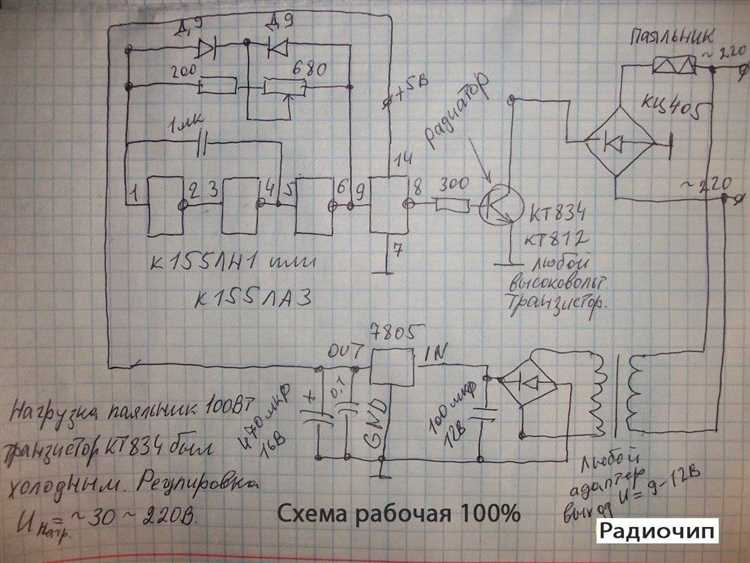 Д,9
Д9
Паяльник
~220
200
680
+5В
КЦ405
1мк
радиатор
14
1
2
3
4
5
6
9
8
300
~220
7
КТ834
КТ812
любой
высоковольт
транзистор.
К155ЛН1 или
К155ЛА3
7805
OUT
IN
+
470мкр
16В
0,1
GND
100мкр
12В
Нагрузка паяльник 100Вт
транзистор КТ834 был
холодным. Регулировка
Uнагр.=~30~220В.
Любой
адаптер
выход U=9-12В
Схема рабочая 100%
Радиочип